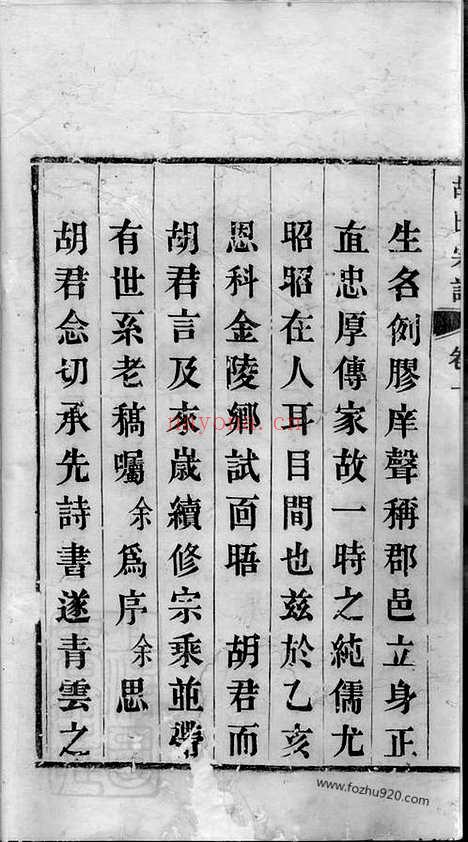 胡氏宗譜 卷一
生名例膠庠聲稱郡邑立身正
直忠厚傳家故一時之純儒尤
昭昭在人耳目間也茲於乙亥
恩科金陵鄉試面晤 胡君而
胡君言及來歲續修宗乘並
有世系老稿囑余為序余思
胡君念切承先詩書遂青雲之
nayona.cn
www.fozhu920.com